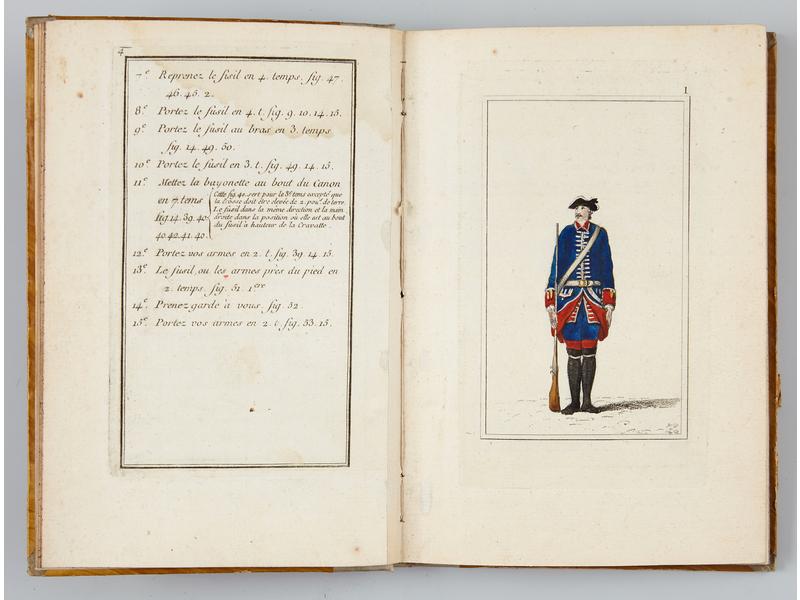 4
7.e Reprenez le fusil en 4. temps. fig. 47.
46. 45. 2.
8.e Portez le fusil en 4. t. fig. 9. 10. 14. 15.
9.e Portez le fusil au bras en 3. temps
fig. 14. 49. 50.
10.e Portez le fusil en 3. t. fig. 49. 14. 15.
11.e Mettez la bayonette au bout du Canon
en 7. tems
fig. 14. 39. 40.
40. 42. 41. 40.
Cette fig. 40. sert pour le 3.e tems excepté que
la crosse doit être elevée de 2. pou.s de terre.
Le fusil dans la même direction et la main
droite dans la position où elle est au bout
du fusil à hauteur de la Cravatte.
12.e Portez vos armes en 2. t. fig. 39. 14. 15.
13.e Le fusil ou les armes près du pied en
2. temps. fig. 51. 1.ere
14.e Prenez garde à vous. fig. 52.
15.e Portez vos armes en 2. t. fig. 53. 15.
1